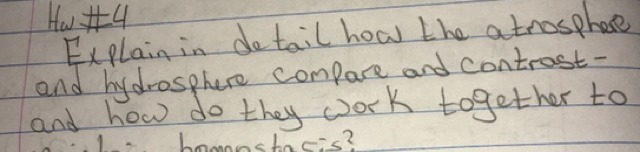 Hw #4
Explain in detail how the atmosphere
and hydrosphere compare and contrast-
and how do they work together to
homeostasis?